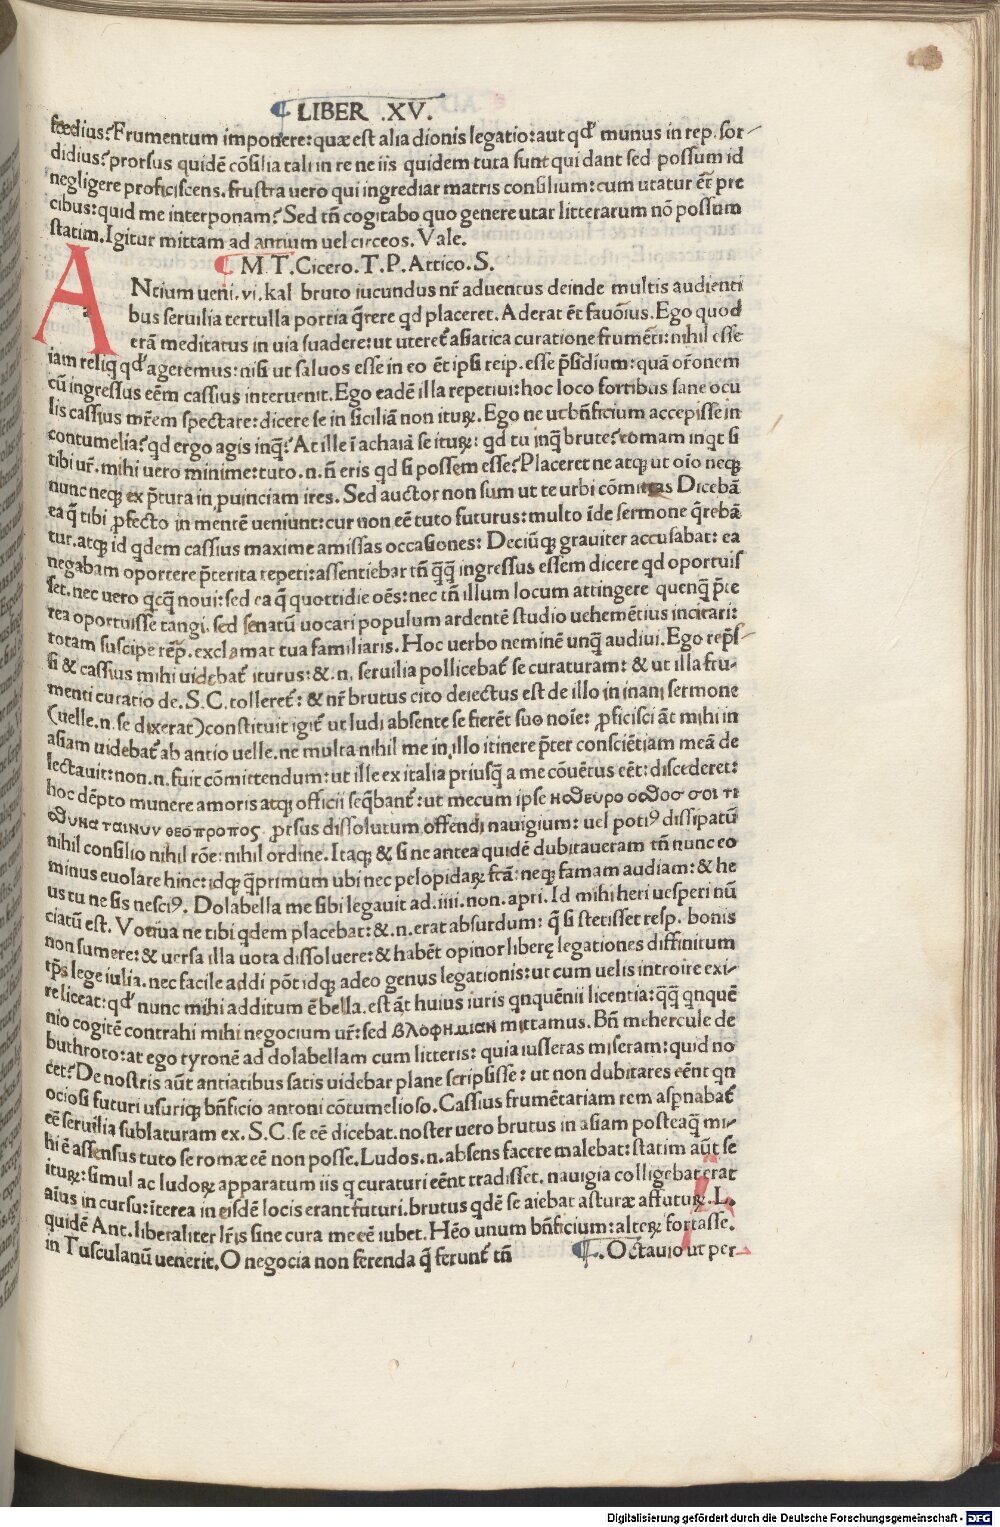 LIBER .XV.
fœdius? Frumentum imponere: quæ est alia dionis legatio: aut qđ munus in rep. sor-
didius? prorsus quidē cōsilia tali in re ne iis quidem tuta sunt qui dant sed possum id
negligere proficiscens. frustra uero qui ingrediar matris consilium: cum utatur ēt pre
cibus: quid me interponam? Sed tñ cogitabo quo genere utar litterarum nō possum
statim. Igitur mittam ad antium uel circeos. Vale.
M T. Cicero. T. P. Attico. S.
ANtium ueni. vi. kal bruto iucundus nr̄ aduentus deinde multis audienti
bus seruilia tertulla portia q̄rere qd placeret. Aderat ēt fauōius. Ego quod
erā meditatus in uia suadere: ut uteret᷑ asiatica curatione frumēti: nihil esse
iam reliq qđ ageremus: nisi ut saluos esse in eo ēt ipsi reip. esse p̄sidium: quā or̄onem
cū ingressus eēm cassius interuenit. Ego eadē illa repetiui: hoc loco fortibus sane ocu
lis cassius mr̄em spectare: dicere se in siciliā non iturꝝ. Ego ne ut bñficium accepisse in
contumelia? qd ergo agis inq̄? At ille ī achaiā se iturꝝ: qd tu inq̄ brute? romam inqt si
tibi ur̄. mihi uero minime: tuto. n. ñ eris qd si possem esse? Placeret ne atqꝫ ut oīo neqꝫ
nunc neqꝫ ex p̄tura in ꝓuinciam ires. Sed auctor non sum ut te urbi cōmittas Dicebā
ea q̄ tibi ꝓfecto in mentē ueniunt: cur non eē tuto futurus: multo īde sermone q̄rebā
tur. atqꝫ id qdem cassius maxime amissas occasiones: Deciūqꝫ grauiter accusabat: ea
negabam oportere p̄terita repeti: assentiebar tñ q̄q̄ ingressus essem dicere qd oportuis
set. nec uero qcq̄ noui: sed ea q̄ quottidie oēs: nec tñ illum locum attingere quenq̄ p̄te
rea oportuisse tangi. sed senatū uocari populum ardentē studio uehemētius incitari:
totam suscipe rēp. exclamat tua familiaris. Hoc uerbo neminē unq̄ audiui. Ego rep̄s-
si & cassius mihi uidebat᷑ iturus: &. n. seruilia pollicebat᷑ se curaturam: & ut illa fru-
menti curatio de. S. C. tolleret᷑: & nr̄ brutus cito deiectus est de illo in inani sermone
(uelle. n. se dixerat) constituit igit᷑ ut ludi absente se fierēt suo noīe: ꝓficisci āt mihi in
asiam uidebat᷑ ab antio uelle. ne multa nihil me in illo itinere p̄ter consciētiam meā de
lectauit: non. n. fuit cōmittendum: ut ille ex italia priusq̄ a me cōuētus eēt: discederet:
hoc dēpto munere amoris atqꝫ officii seq̄bant᷑: ut mecum ipse ηοδευρο οοδοσ σοι τι
οδυνα ταινυν θεοπροπος. prsus dissolutum offendi nauigium: uel potiꝰ dissipatū
nihil consilio nihil rōe: nihil ordine. Itaqꝫ & si ne antea quidē dubitaueram tñ nunc eo
minus euolare hinc: idqꝫ q̄primum ubi nec pelopidaꝝ fcā: neqꝫ famam audiam: & he
us tu ne sis nesciꝰ. Dolabella me sibi legauit ad. iiii. non. apri. Id mihi heri uesperi nū
ciatū est. Votiua ne tibi qdem placebat: &. n. erat absurdum: q̄ si stetisset resp. bonis
non sumere: & uersa illa uota dissoluere: & habēt opinor liberę legationes diffinitum
tp̄s lege iulia. nec facile addi pōt idqꝫ adeo genus legationis: ut cum uelis introire exi-
re liceat: qđ nunc mihi additum ē bella. est āt huius iuris qnquēnii licentia: q̄q̄ qnquē
nio cogitē contrahi mihi negocium ur̄: sed βλοφημιαν mittamus. Bñ mehercule de
buthroto: at ego tyronē ad dolabellam cum litteris: quia iusseras miseram: quid no
cet? De nostris aūt antiatibus satis uidebar plane scripsisse: ut non dubitares eēnt qn
ociosi futuri usuriqꝫ bñficio antoni cōtumelioso. Cassius frumētariam rem aspnabat᷑
eē seruilia sublaturam ex. S. C. se eē dicebat. noster uero brutus in asiam posteaq̄ mi-
hi ē assensus tuto se romæ eē non posse. Ludos. n. absens facere malebat: statim aūt se
iturꝝ: simul ac ludoꝝ apparatum iis q curaturi eēnt tradisset. nauigia colligebat erat
aīus in cursu: īterea in eisdē locis erant futuri. brutus qdē se aiebat asturæ affuturꝝ. L.
quidē Ant. liberaliter lr̄is sine cura me eē iubet. Hēo unum bñficium: alterꝝ fortasse.
in Tusculanū uenerit. O negocia non ferenda q̄ ferunt᷑ tñ . Octauio ut per
Digitalisierung gefördert durch die Deutsche Forschungsgemeinschaft - DFG